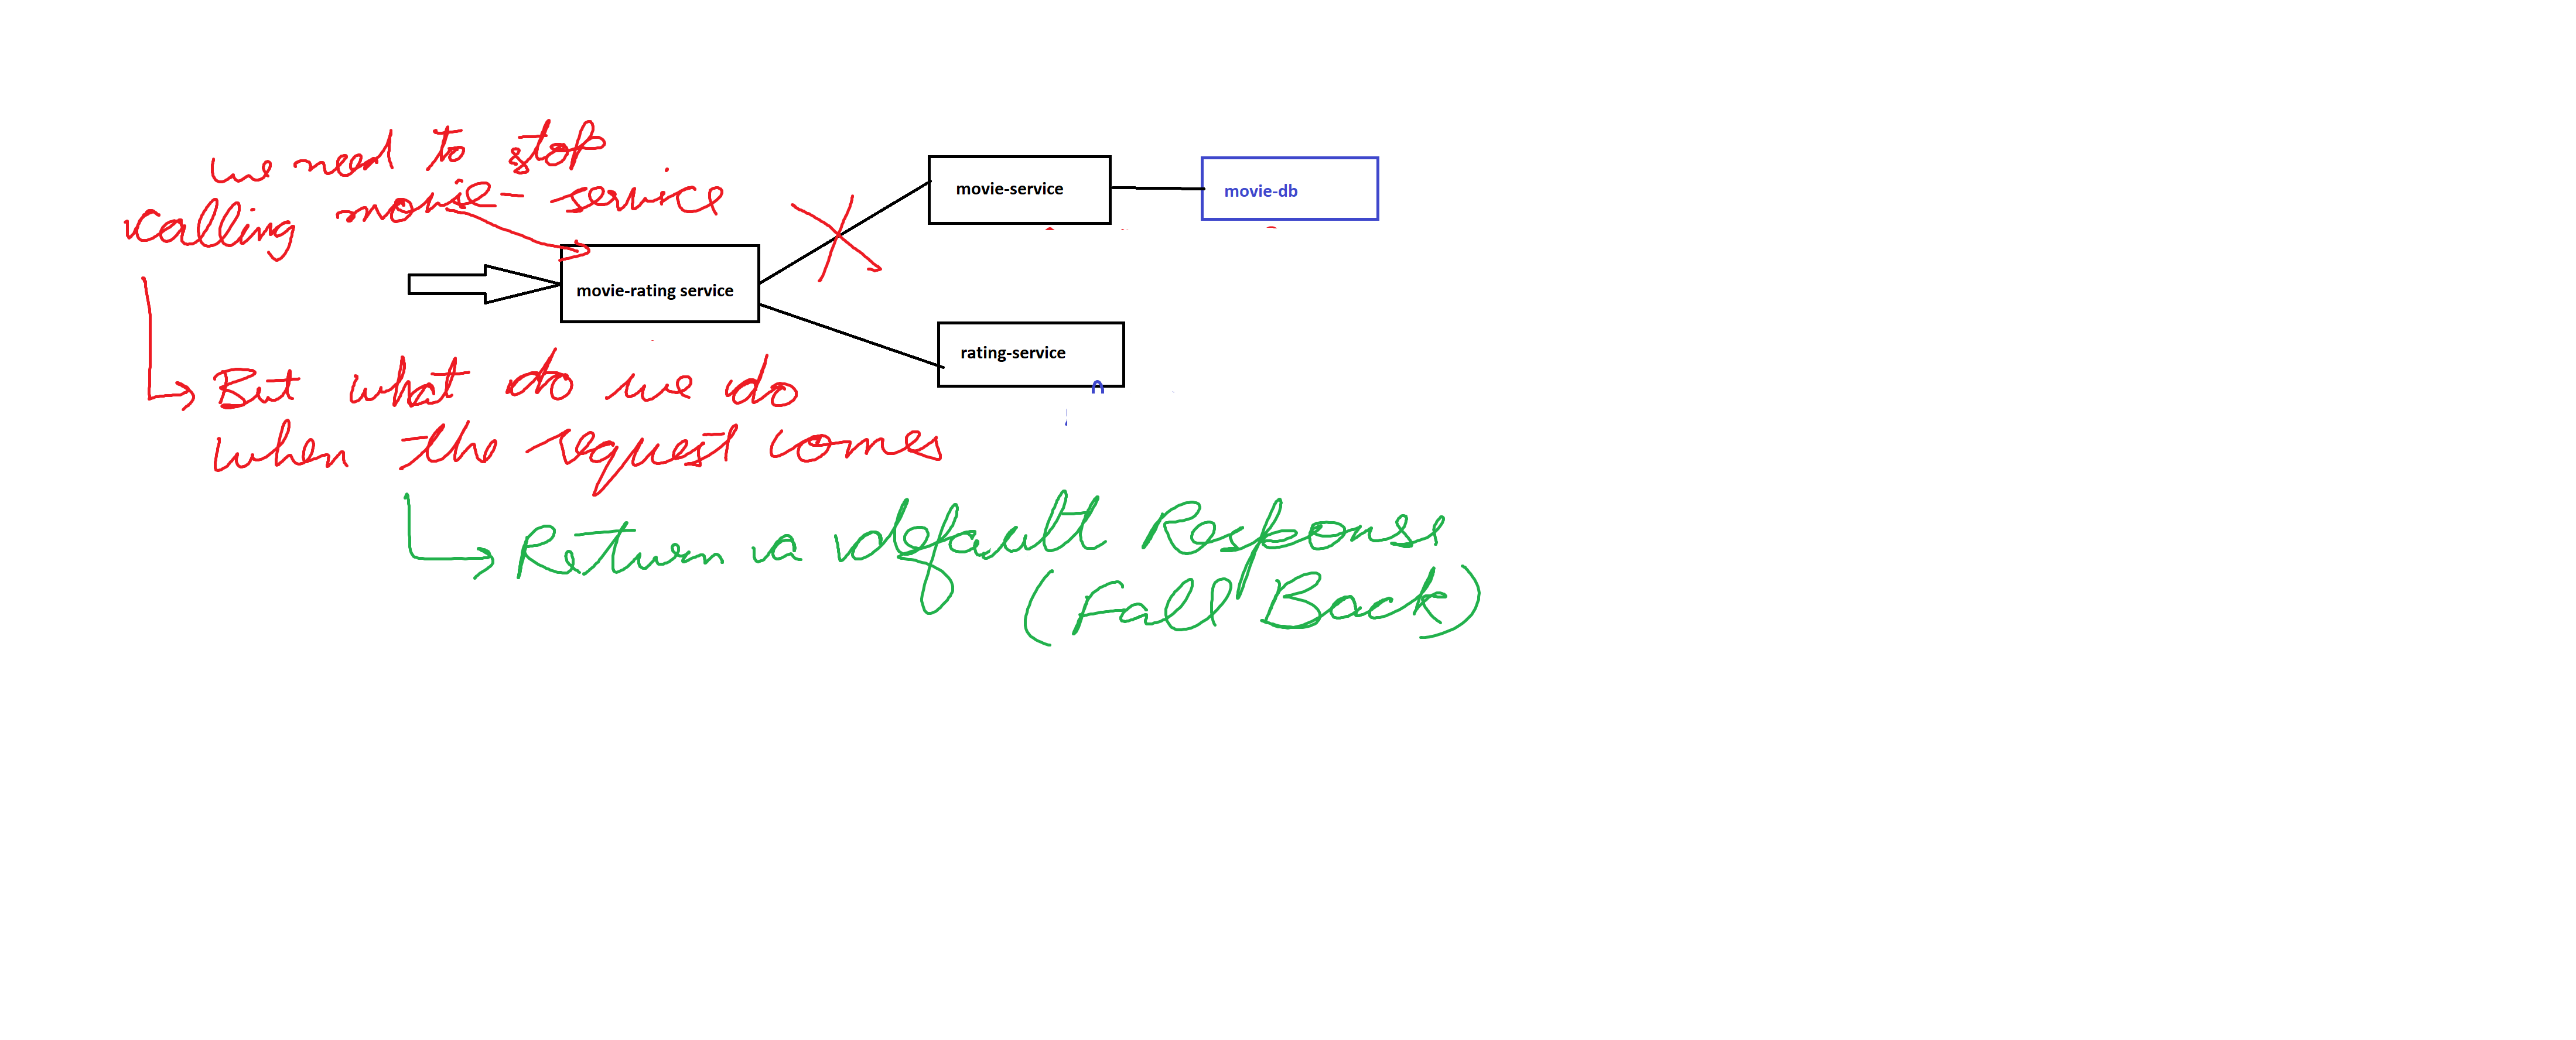 we need to stop
calling movie-service
movie-service
movie-db
movie-rating service
rating-service
But what do we do
when the request comes
Return a default Response
(Fall Back)